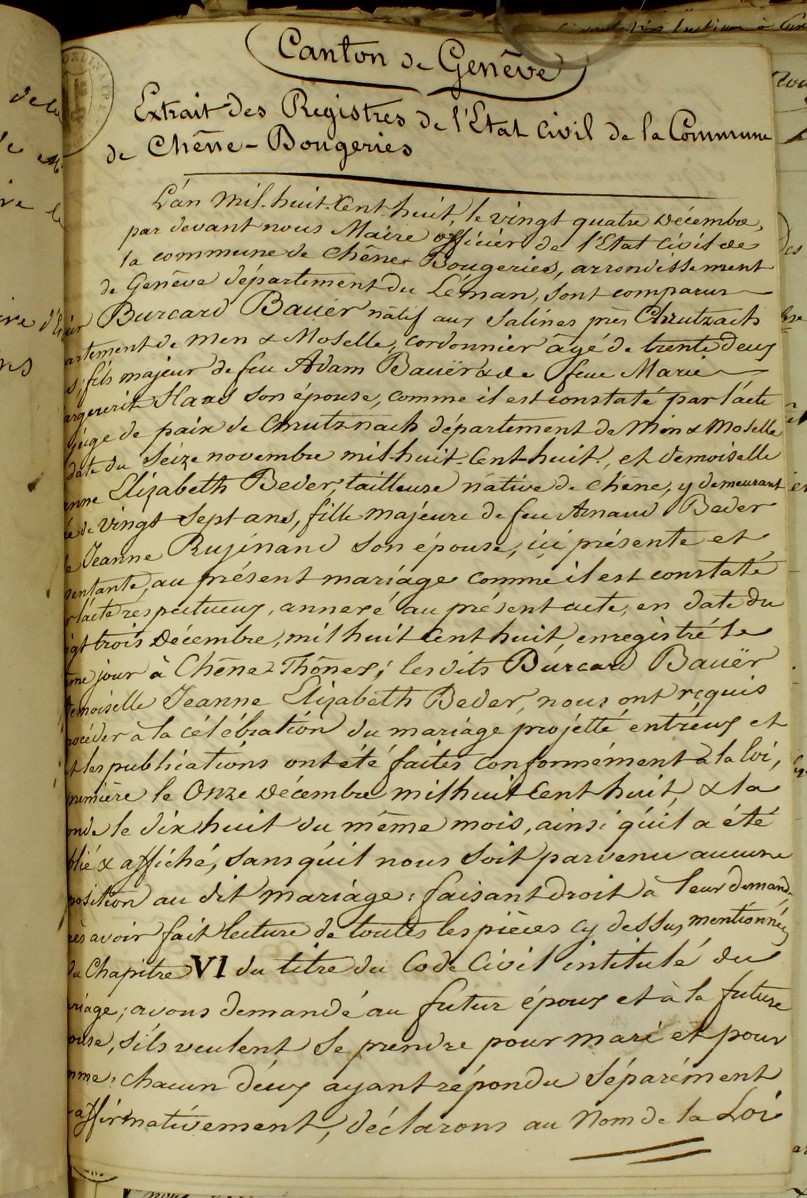 Canton de Genêve
Extrait des Registres de l'Etat Civil de la Commune
de Chêne-Bougeries
L'an mil-huit-Cent-huit, le vingt quatre décembre,
par devant nous Maire officier de l'Etat Civil de
la commune de Chêne Bougeries, arrondissement
de Genêve département du Léman, sont comparus
Burcard Bauër natif aux Salines près Chrutznach
artement de Rhin & Moselle, cordonnier âgé de trente deux
s, fils majeur de feu Adam Bauër & de feue Marie
arguerit Haas son épouse, comme il est constaté par l'acte
juge de paix de Chrutznach département de Rhin & Moselle
date du Seize novembre mil huit-Cent-huit, et demoiselle
anne Elizabeth Beder tailleuse native de chêne, y demeurant
é de vingt sept ans, fille majeure de feu Arnaud Beder
e Jeanne son épouse, ici présente et
sentante, au présent mariage comme il est constaté
r l'acte respectueux, annexé au présent acte, en date du
gt trois décembre, mil huit Cent huit, enregistré le
me jour à Chêne-Thônex; les dits Burcard Bauër
emoiselle Jeanne Elizabeth Beder, nous ont requis
océder à la célébration du mariage projetté entr'eux et
t les publications ont été faites conformément à la loi,
remière le Onze décembre mil huit Cent huit, & la
onde le dix huit du même mois, ainsi qu'il a été
blié & affiché, sans qu'il nous soit parvenu aucune
position au dit mariage: faisant droit à leur demand
rès avoir fait lecture de toutes les pièces cy dessus mentionnées
du Chapitre VI du titre du Code Civil intitulé du
riage; avons demandé au futur époux et à la future
ouse, s'ils veulent se prendre pour mari et pour
mme, chacun d'eux ayant répondu séparément
affirmativement, déclarons au Nom de la Loi